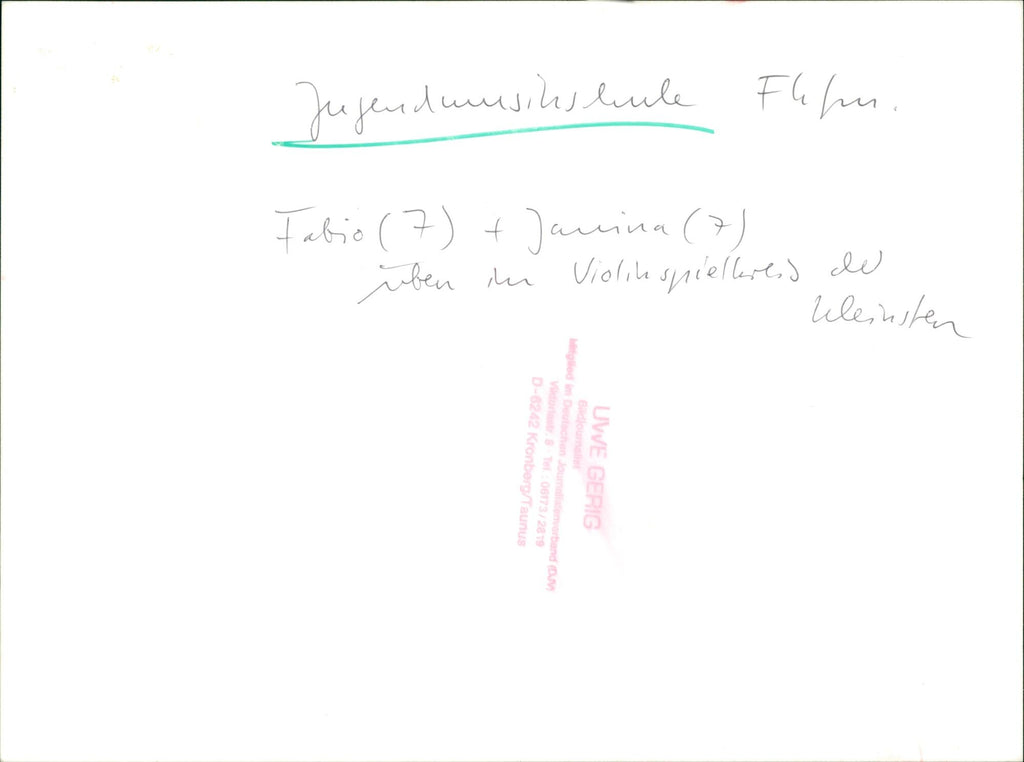 Jugendmusikschule Ffm.
Fabio (7) + Janina (7)
üben im Violinspielkreis der
Kleinsten
UWE GERIG
Bildjournalist
Mitglied im Deutschen Journalistenverband (DJV)
Viktoriastr. 8 · Tel.: 06173/2819
D-6242 Kronberg/Taunus